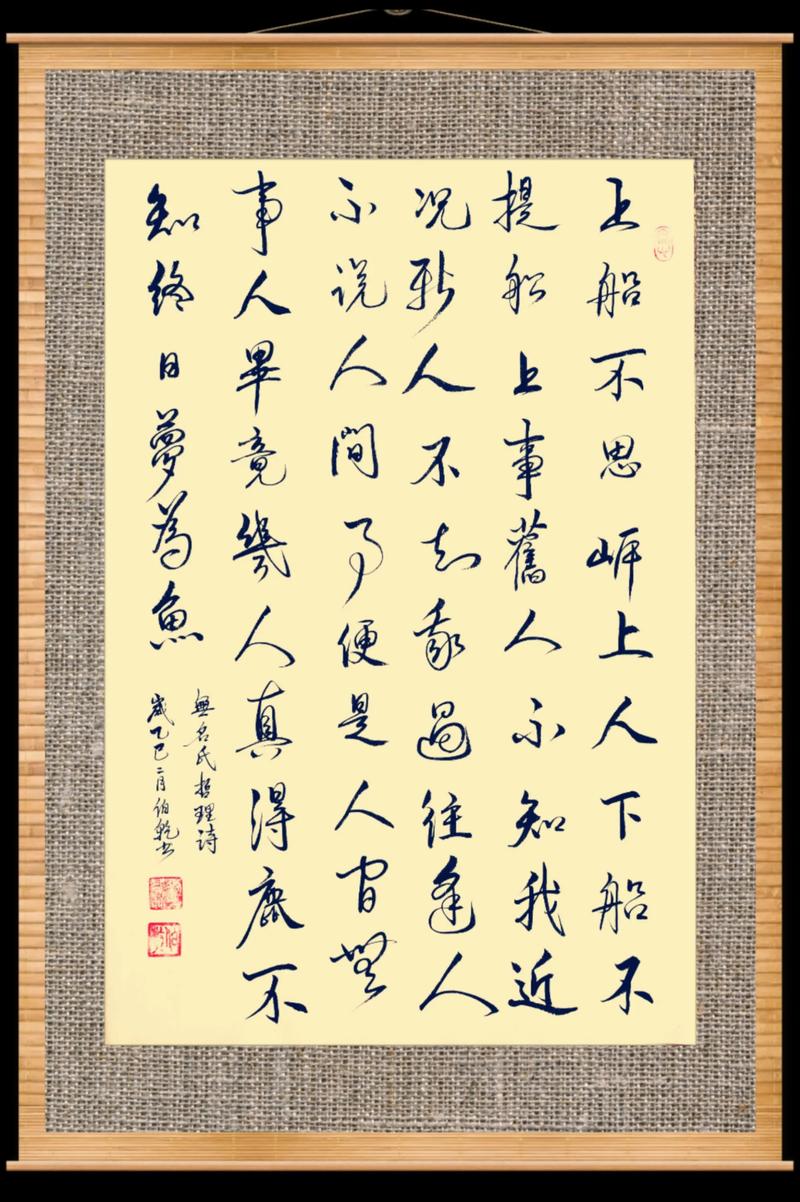 上船不思岸上人下船不
提船上事舊人不知我近
況新人不知我過往逢人
不说人間事便是人间無
事人畢竟幾人真得鹿不
知終日夢為魚
無名氏哲理詩
歲乙巳二月伯乾书